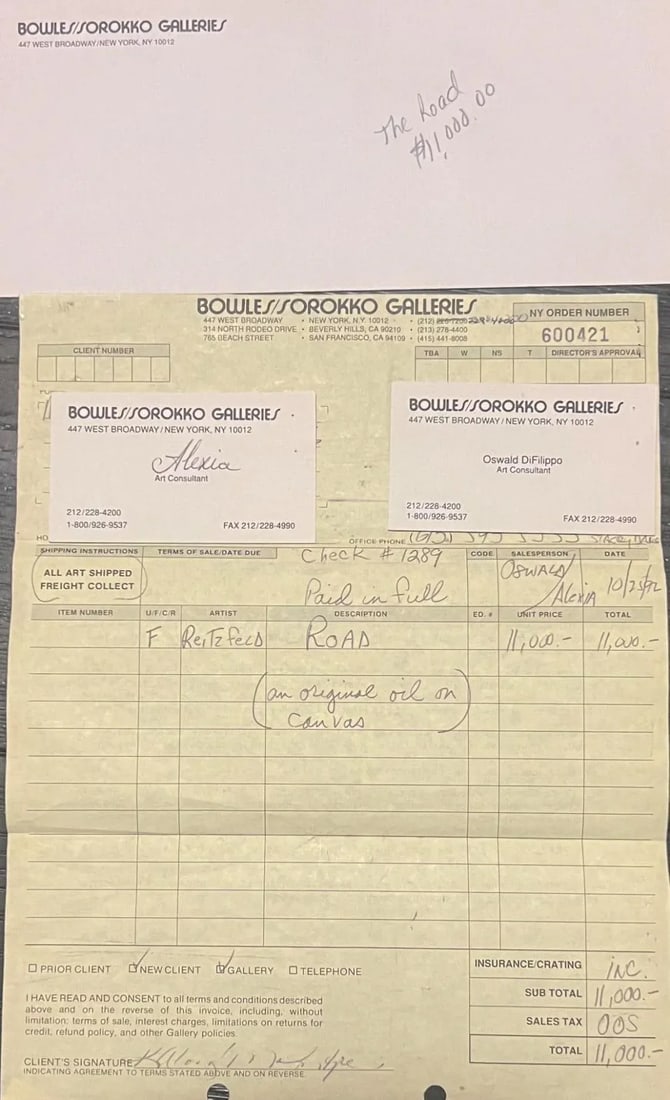 BOWLES/SOROKKO GALLERIES
447 WEST BROADWAY/NEW YORK, NY 10012
The Road
$11,000.00
BOWLES/SOROKKO GALLERIES
447 WEST BROADWAY • NEW YORK, N.Y. 10012 • (212)
314 NORTH RODEO DRIVE • BEVERLY HILLS, CA 90210 • (213) 278-4400
765 BEACH STREET • SAN FRANCISCO, CA 94109 • (415) 441-8008
NY ORDER NUMBER
600421
CLIENT NUMBER
TBA W NS T DIRECTOR'S APPROVAL
BOWLES/SOROKKO GALLERIES
447 WEST BROADWAY/NEW YORK, NY 10012
Alexia
Art Consultant
212/228-4200
1-800/926-9537 FAX 212/228-4990
BOWLES/SOROKKO GALLERIES
447 WEST BROADWAY/NEW YORK, NY 10012
Oswald DiFilippo
Art Consultant
212/228-4200
1-800/926-9537 FAX 212/228-4990
HO
OFFICE PHONE
SHIPPING INSTRUCTIONS TERMS OF SALE/DATE DUE Check # 1289 CODE SALESPERSON DATE
ALL ART SHIPPED
FREIGHT COLLECT
Paid in full
OSWALD/
Alexia 10/25/92
ITEM NUMBER U/F/C/R ARTIST DESCRIPTION ED. # UNIT PRICE TOTAL
F ReiTzfeld ROAD 11,000.- 11,000.-
(an original oil on
canvas)
PRIOR CLIENT NEW CLIENT GALLERY TELEPHONE
I HAVE READ AND CONSENT to all terms and conditions described
above and on the reverse of this invoice, including, without
limitation: terms of sale, interest charges, limitations on returns for
credit, refund policy, and other Gallery policies.
CLIENT'S SIGNATURE
INDICATING AGREEMENT TO TERMS STATED ABOVE AND ON REVERSE.
INSURANCE/CRATING INC.
SUB TOTAL 11,000.-
SALES TAX OOS
TOTAL 11,000.-